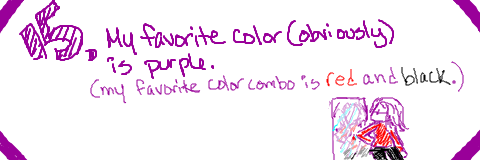 15. My favorite color (obviously)
is purple.
(my favorite color combo is red and black.)